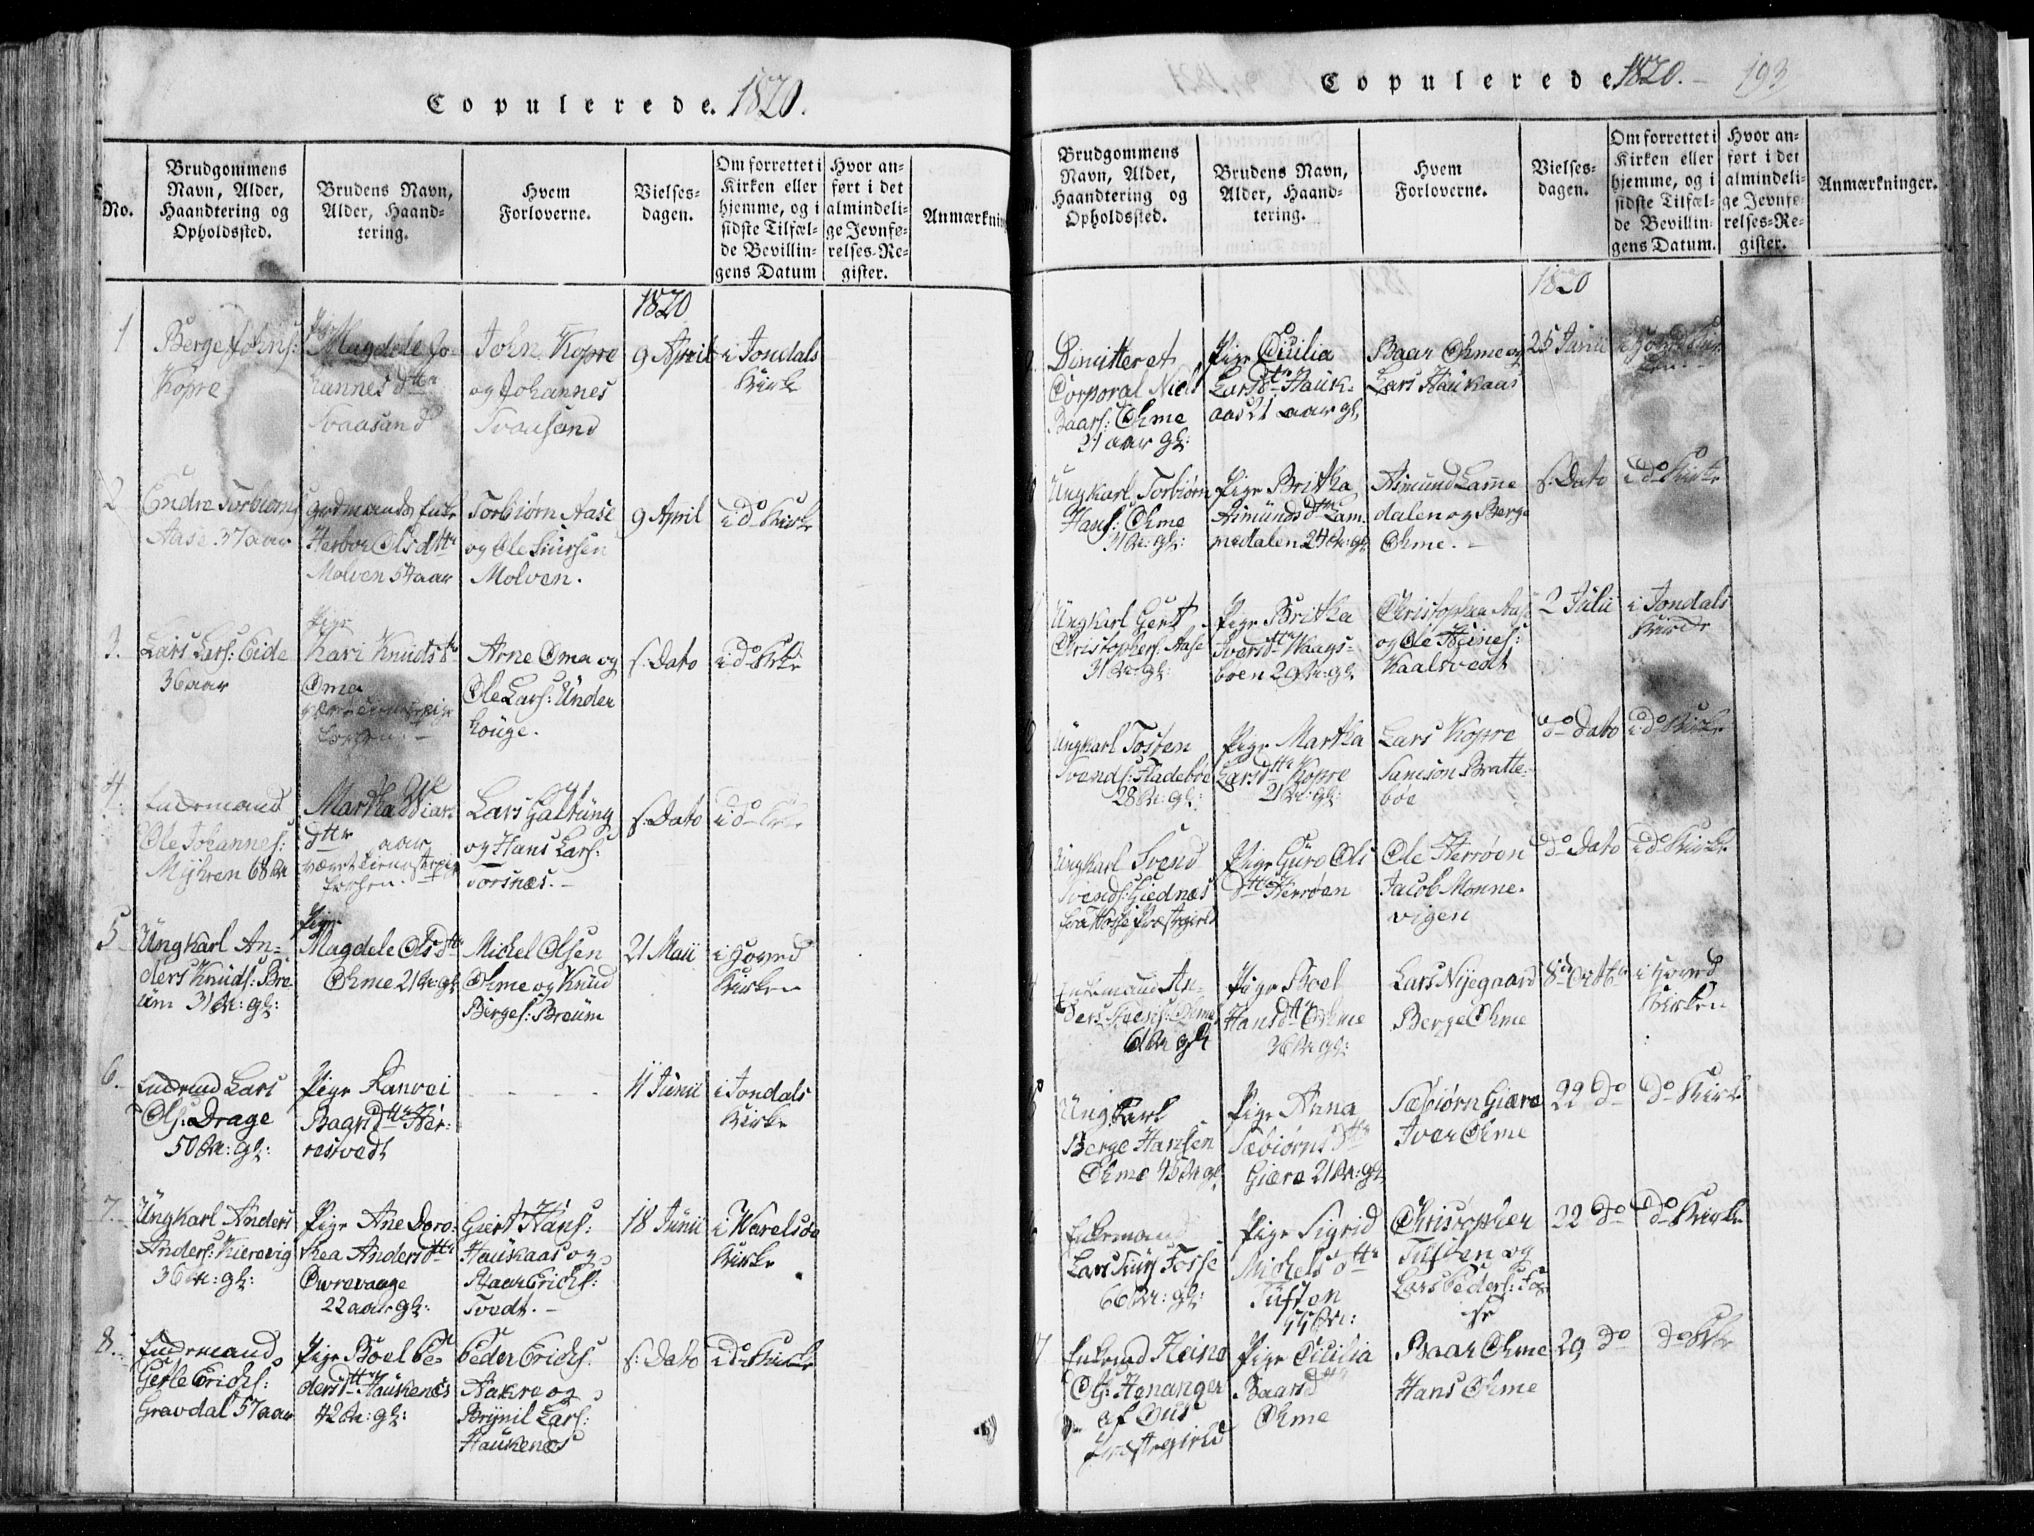 Copulerede. 1820.
No.
Brudgommens
Navn, Alder,
Haandtering og
Opholdssted.
Brudens Navn,
Alder, Haand-
tering.
Hvem
Forloverne.
Vielses-
dagen.
Om forrettet i
Kirken eller
hjemme, og i
sidste Tilfæl-
de Bevillin-
gens Datum
Hvor an-
ført i det
almindeli-
ge Jevnfø-
relses-Re-
gister.
Anmærkning
1820
1
Berge Johns:
Kopre
Pige
Magdele Jo-
hannes dttr
Svaasand
John Kopre
og Johannes
Svausand
9 April
i Jondals
Kirke
2
Endre Torbiørns
Aase 37 aar
Herbor Olsdttr
Molven 54 aar
Torbiørn Aase
og Ole Siursen
Molven.
9 April
i do Kirke
3.
Lars Lars: Eide
36 aar
Pige
Kari Knudsdtr
Oma
Arne Oma og
Ole Lars: Under
houge.
s: Dato
i do Kirke
4.
Enkemand
Ole Johannes:
Myhren 68 Ar
Martha
dttr aar
Lars Galtung
og Hans Lars:
Torsnæs. –
s: Dato
i do Kirke
5
Ungkarl An-
ders Knuds: Bre
üm 31 Ar: gl:
Pige
Magdele Olsdttr
Ohme 21 Ar: gl
Michel Olsen
Ohme og Knud
Berges: Breüm
21 Maii
i Hoved
Kirken
6.
Enkemd Lars
Ols: Drage
50 Ar: gl:
Pige Ranvei
Baarsdttr Her-
restvedt
11 Junii
i Jondals
Kirke
7.
Ungkarl Anders
Anders: Kierevig
36 Ar: gl:
Pige Ane Doro-
thea Andersdttr
Overvaage
22 aar gl:
Giert Hans:
Haukaas og
Baar Erichs:
Tvedt. –
18 Junii
i Warelsøe
Kirke
8.
Enkemand
Gietle Erichs:
Gravdal 57 aar
Pige Boel Pe-
dersdttr Haukenæs
42 Ar: gl:
Peder Erichs:
Aakre og
Brynil Lars:
Haukenæs
s: Dato
i do Kirke
Copulerede 1820. – 193
Brudgommens
Navn, Alder,
Haandtering og
Opholdssted.
Brudens Navn,
Alder, Haand-
tering.
Hvem
Forloverne.
Vielses-
dagen.
Om forrettet i
Kirken eller
hjemme, og i
sidste Tilfæl-
de Bevillin-
gens Datum.
Hvor an-
ført i det
almindeli-
ge Jevnfø-
relses-Re-
gister.
Anmærkninger.
1820
Dimitteret
Corporal Niels
Baars: Ohme
31 aar gl:
Pige Cicilia
Larsdtr Hauk-
aas 21 aar gl
Baar Ohme og
Lars Haukaas
25 Junii
Ungkarl Torbiørn
Hans: Ohme
31 Ar: gl:
Pige Britha
Asmundsdttr Lam-
medalen 24 Ar: gl
Asmund Lame
dalen og Berge
Ohme. –
s: Dato
i do Kirke
Ungkarl Gert
Christophers: Aase
31 Ar: gl:
Pige Britha
Iversdttr Waags-
bøen 29 Ar: gl
Christopher Aase
og Ole Heines:
Kaalsvedt
2 Julii
i Jondals
Kirke
Ungkarl Tosten
Svends: Fladebøe
28 Ar: gl:
Pige Martha
Larsdttr Kopre
21 Ar: gl:
Lars Kopre
Samson Bratte-
bøe
do Dato
i do Kirke
Ungkarl Svend
Svends: Giednæs
Pige Guro Ols
dttr Herrøen
Ole Herrøen
Jacob Monne-
vigen
do Dato
i do Kirke
Enkemand An-
ders
61 Ar gl
Pige Boel
Hansdttr Ohme
36 Ar gl:
Lars Nijegaard
Berge Ohme
8de Octbr
i Hoved
Kirken
Ungkarl
Berge Hansen
Ohme 45 Ar gl:
Pige Anna
Sæbiørnsdttr
Giære 21 Ar: gl:
Sæbiørn Giære
Iver Ohme
22 do
do Kirke
Enkemand
Lars Siurs: Fosse
66 Ar: gl:
Pige Sigrid
Michelsdttr
Tufton
44 Ar:
Christopher
Tuften og
Lars Peders: Fos-
se
22 do
do Kirke
Enkemd Heine
Ols: Henanger
af Ous
Præstegield
Pige Cicilia
Baarsdttr
Ohme
Baar Ohme
Hans Ohme
29 do
do Kirke